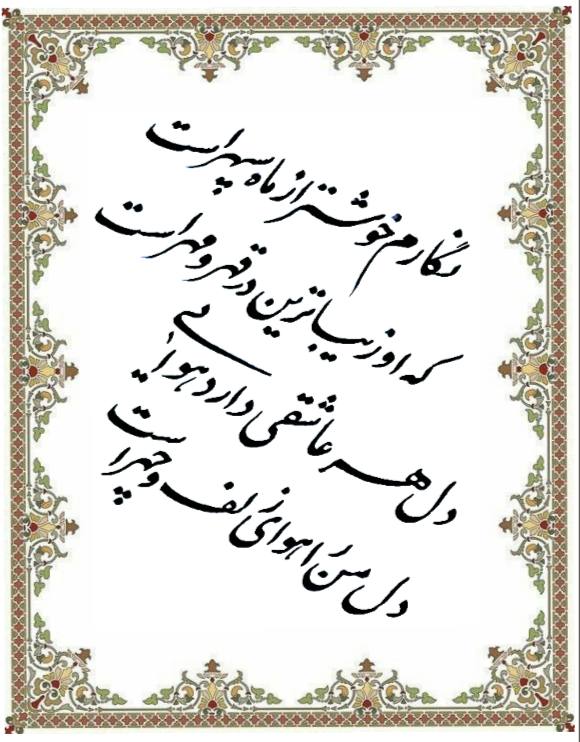 نگارم خوشتر از ماه سپهر است
که او زیباترین در قهر و مهر است
دل هر عاشقی دارد هوایی
دل من را هوای زلف و چهر است